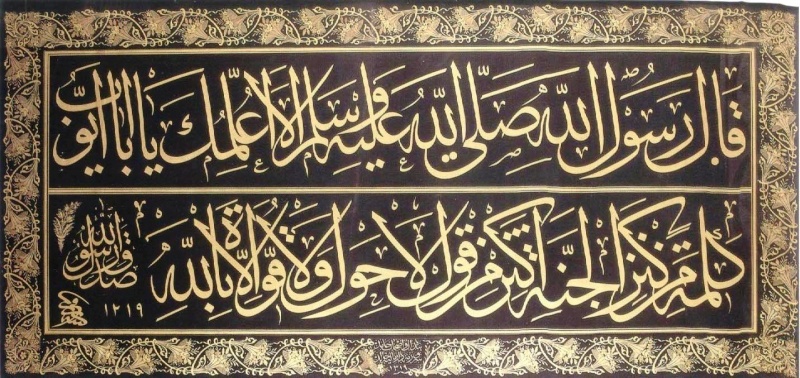 قَالَ رَسُولُ اللّٰه صَلَّى اللّٰه عَلَيْهِ وَسَلَّمَ أَلَا أُعَلِّمُكَ يَا أَبَا أَيُّوب
كَلِمَةً مِنْ كَنْزِ الْجَنَّةِ أَكْثِرْ مِنْ قَوْلِ لَا حَوْلَ وَلَا قُوَّةَ إِلَّا بِاللّٰهِ
صدق رسول الله
١٢١٩